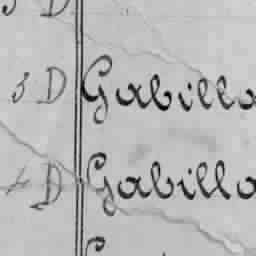 D
3 D Gabillo
4 D Gabillo